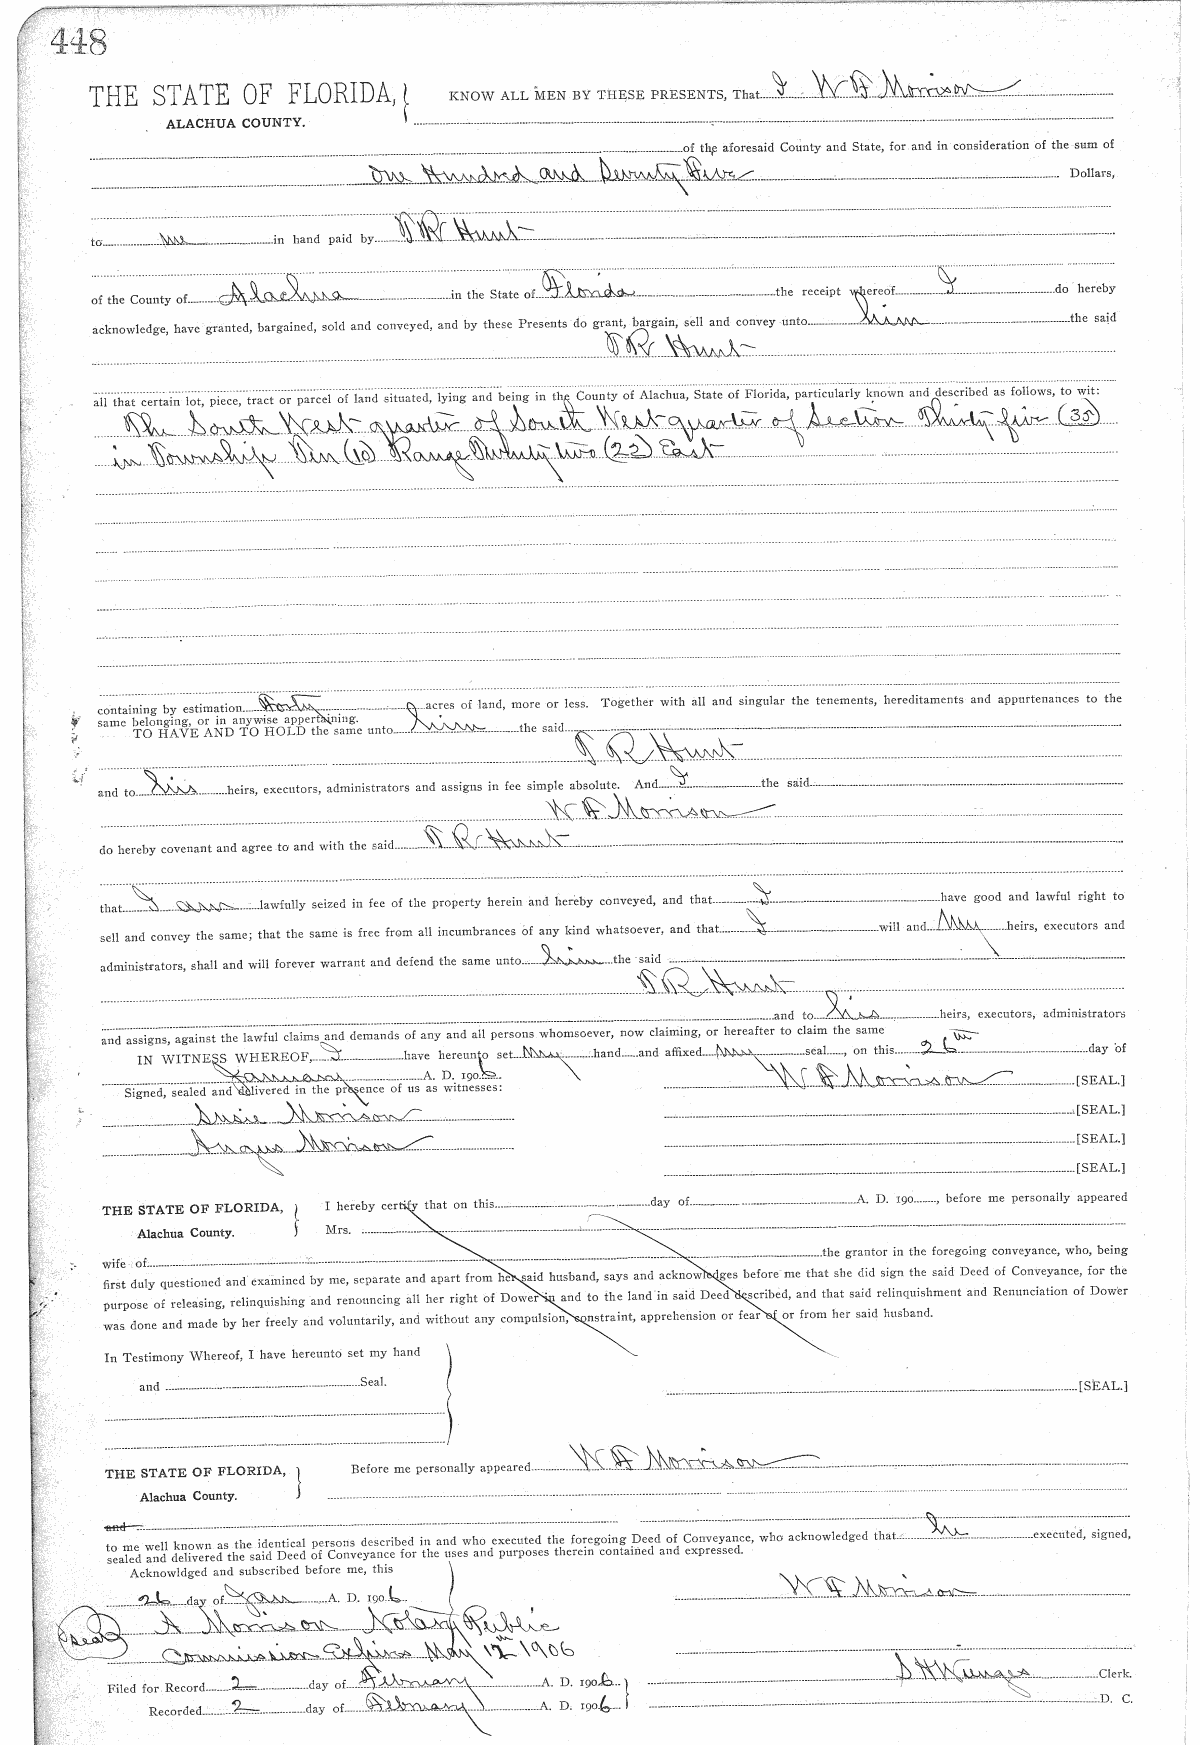 448
THE STATE OF FLORIDA, KNOW ALL MEN BY THESE PRESENTS, That I W F Morrison
ALACHUA COUNTY.
of the aforesaid County and State, for and in consideration of the sum of
One Hundred and Seventy Five Dollars,
to me in hand paid by T R Hunt
of the County of Alachua in the State of Florida the receipt whereof I do hereby
acknowledge, have granted, bargained, sold and conveyed, and by these Presents do grant, bargain, sell and convey unto him the said
T R Hunt
all that certain lot, piece, tract or parcel of land situated, lying and being in the County of Alachua, State of Florida, particularly known and described as follows, to wit:
The South West quarter of South West quarter of Section Thirty five (35)
in Township Ten (10) Range Twenty two (22) East
containing by estimation Forty acres of land, more or less. Together with all and singular the tenements, hereditaments and appurtenances to the
same belonging, or in anywise appertaining.
TO HAVE AND TO HOLD the same unto him the said
T R Hunt
and to his heirs, executors, administrators and assigns in fee simple absolute. And I the said
W F Morrison
do hereby covenant and agree to and with the said T R Hunt
that I am lawfully seized in fee of the property herein and hereby conveyed, and that I have good and lawful right to
sell and convey the same; that the same is free from all incumbrances of any kind whatsoever, and that I will and My heirs, executors and
administrators, shall and will forever warrant and defend the same unto him the said
T R Hunt
and to his heirs, executors, administrators
and assigns, against the lawful claims and demands of any and all persons whomsoever, now claiming, or hereafter to claim the same
IN WITNESS WHEREOF, I have hereunto set My hand and affixed My seal , on this 26th day of
January A. D. 1906.
Signed, sealed and delivered in the presence of us as witnesses: W F Morrison [SEAL.]
Susie Morrison [SEAL.]
Angus Morrison [SEAL.]
[SEAL.]
THE STATE OF FLORIDA, I hereby certify that on this day of A. D. 190 , before me personally appeared
Alachua County. Mrs.
wife of the grantor in the foregoing conveyance, who, being
first duly questioned and examined by me, separate and apart from her said husband, says and acknowledges before me that she did sign the said Deed of Conveyance, for the
purpose of releasing, relinquishing and renouncing all her right of Dower in and to the land in said Deed described, and that said relinquishment and Renunciation of Dower
was done and made by her freely and voluntarily, and without any compulsion, constraint, apprehension or fear of or from her said husband.
In Testimony Whereof, I have hereunto set my hand
and Seal. [SEAL.]
THE STATE OF FLORIDA, Before me personally appeared W F Morrison
Alachua County.
and
to me well known as the identical persons described in and who executed the foregoing Deed of Conveyance, who acknowledged that he executed, signed,
sealed and delivered the said Deed of Conveyance for the uses and purposes therein contained and expressed.
Acknowldged and subscribed before me, this
26 day of Jan A. D. 1906 W F Morrison
Seal A Morrison Notary Public
Commission Expires May 12th 1906
Filed for Record 2 day of February A. D. 1906 S H Wienges Clerk.
Recorded 2 day of February A. D. 1906 D. C.